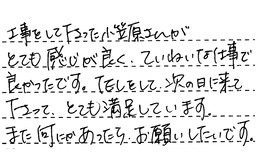 工事をして下さった小笠原さんが
とても感じが良く、ていねいな仕事で
良かったです。TELをして、次の日に来て
下さって、とても満足しています。
また何にかあったら、お願いしたいです。